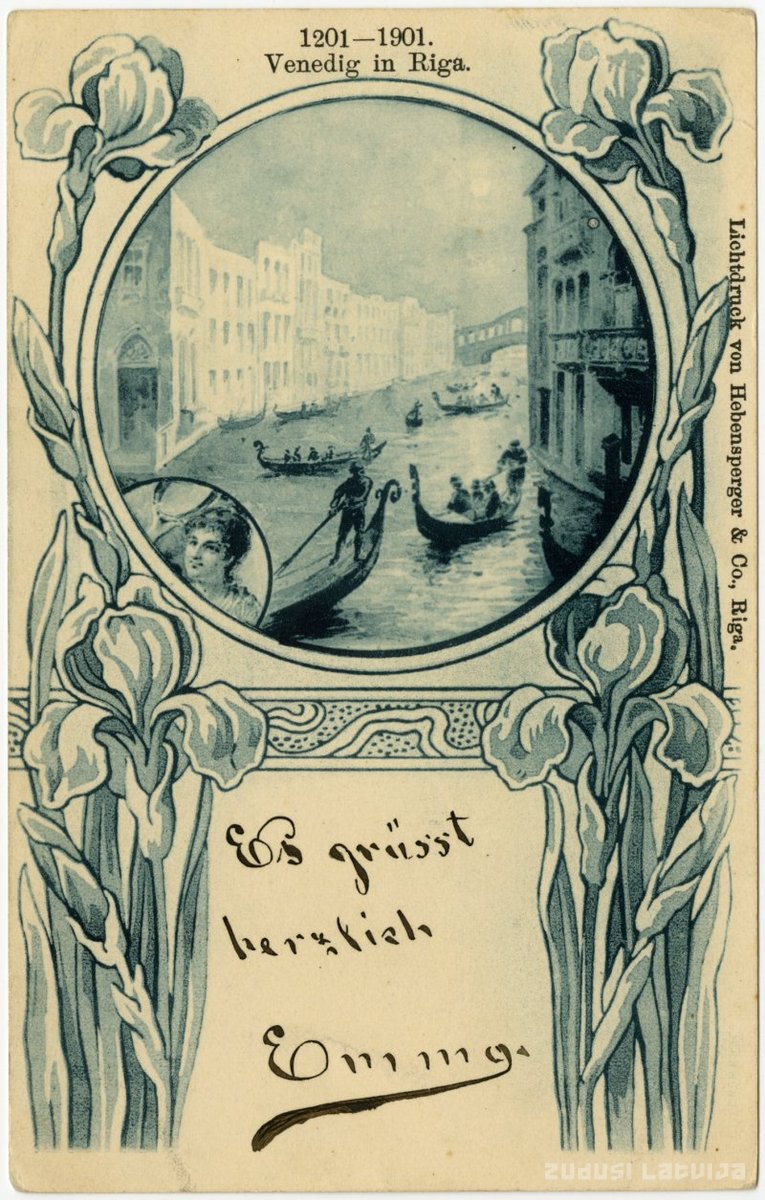 1201—1901.
Venedig in Riga.
Lichtdruck von Hebensperger & Co., Riga.
Es grüsst
herzlich
Emma.
zudusi Latvija